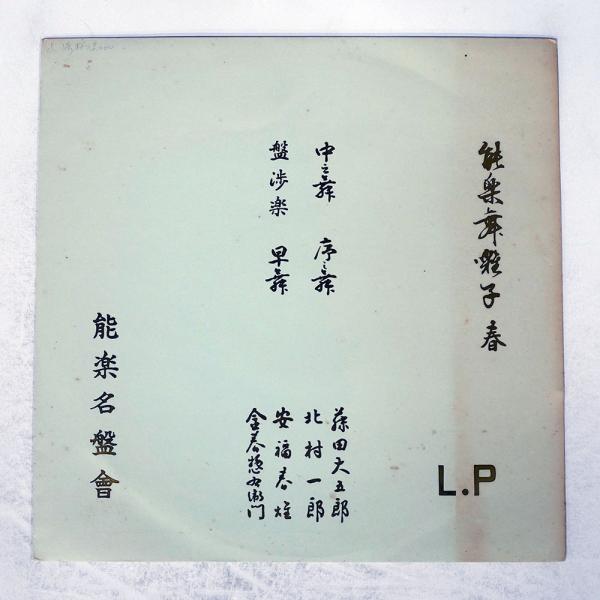 能楽舞囃子 春
中之舞 序之舞
盤渉楽 早舞
藤田大五郎
北村一郎
安福春雄
金春惣右衛門
能楽名盤會
L.P